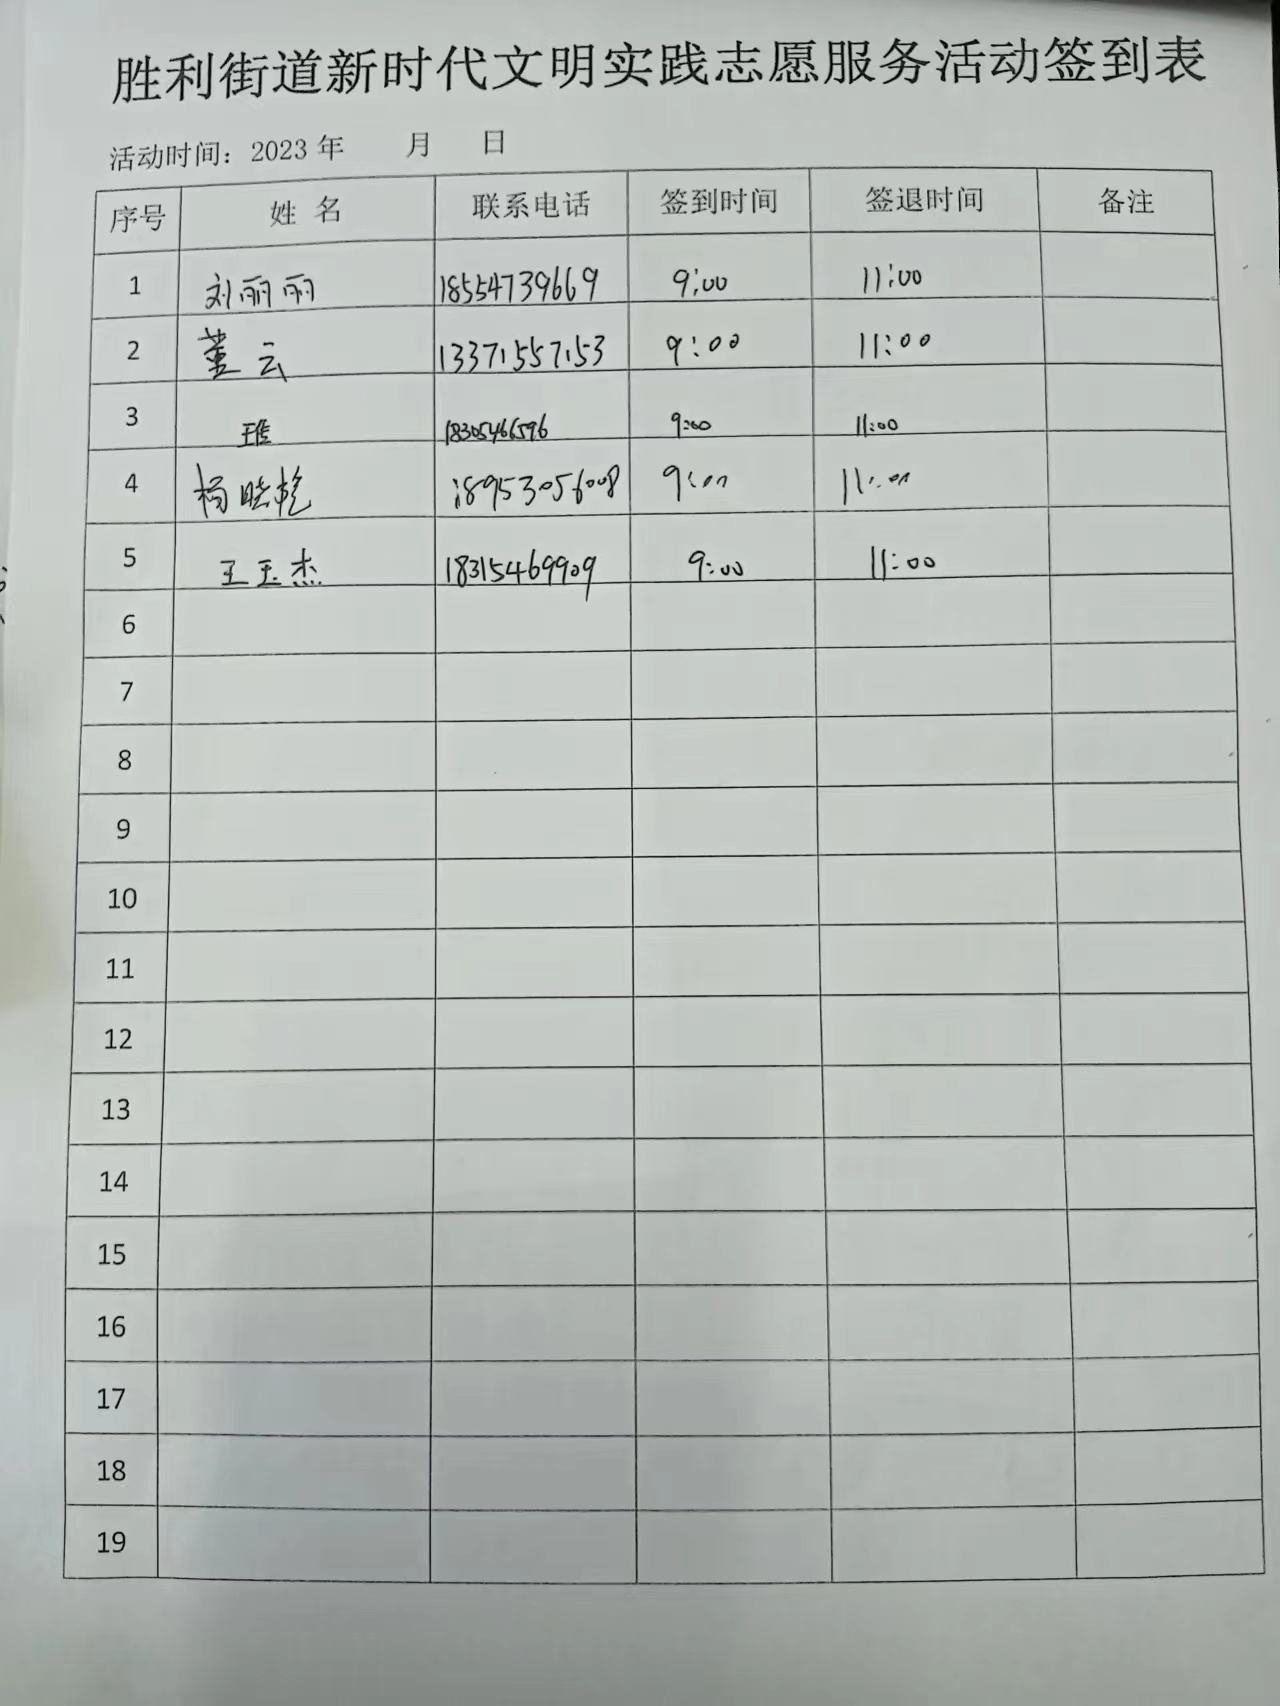 胜利街道新时代文明实践志愿服务活动签到表
活动时间：2023 年 月 日
序号 姓 名 联系电话 签到时间 签退时间 备注
1 刘丽丽 18554739669 9:00 11:00
2 董云 13371557153 9:00 11:00
3 18305466596 9:00 11:00
4 杨晓乾 18953056008 9:00 11:00
5 王玉杰 18315469909 9:00 11:00
6
7
8
9
10
11
12
13
14
15
16
17
18
19